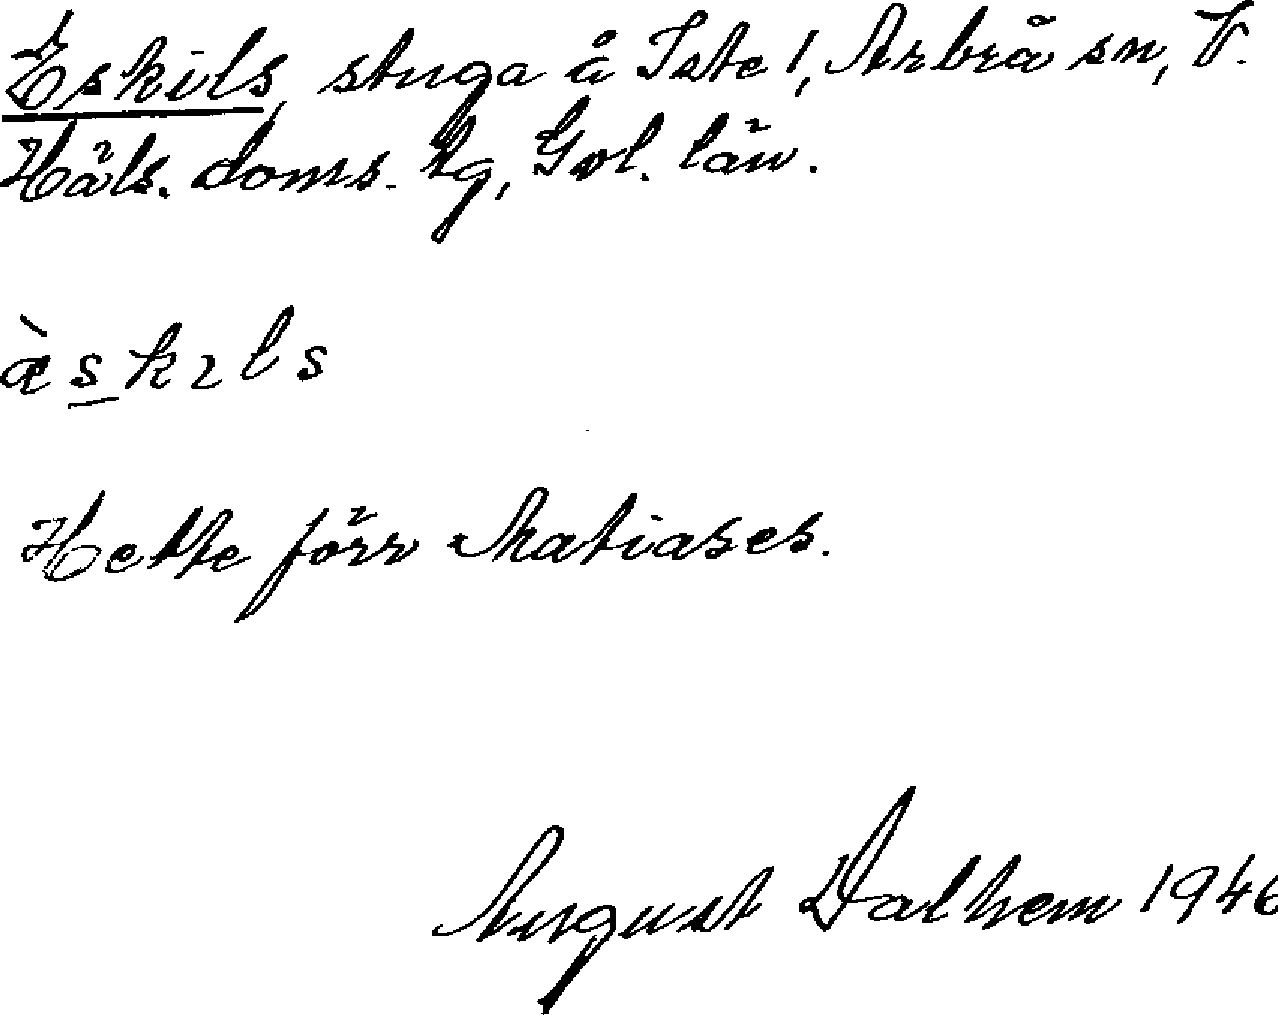 Eskils, stuga å Iste 1, Arbrå sn, V.
Häls. doms. hg, Gvl. län.
æ̀s̲kıls
Hette förr Matiases.
August Dalhem 1946